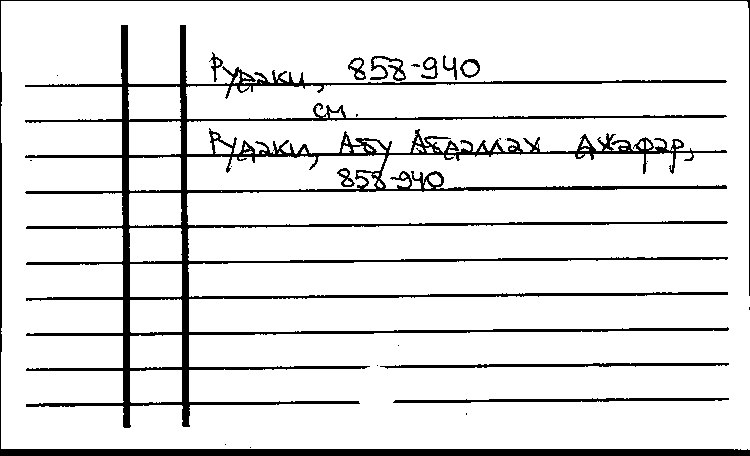 Рудаки, 858-940
см.
Рудаки, Абу Абдаллах Джафар,
858-940